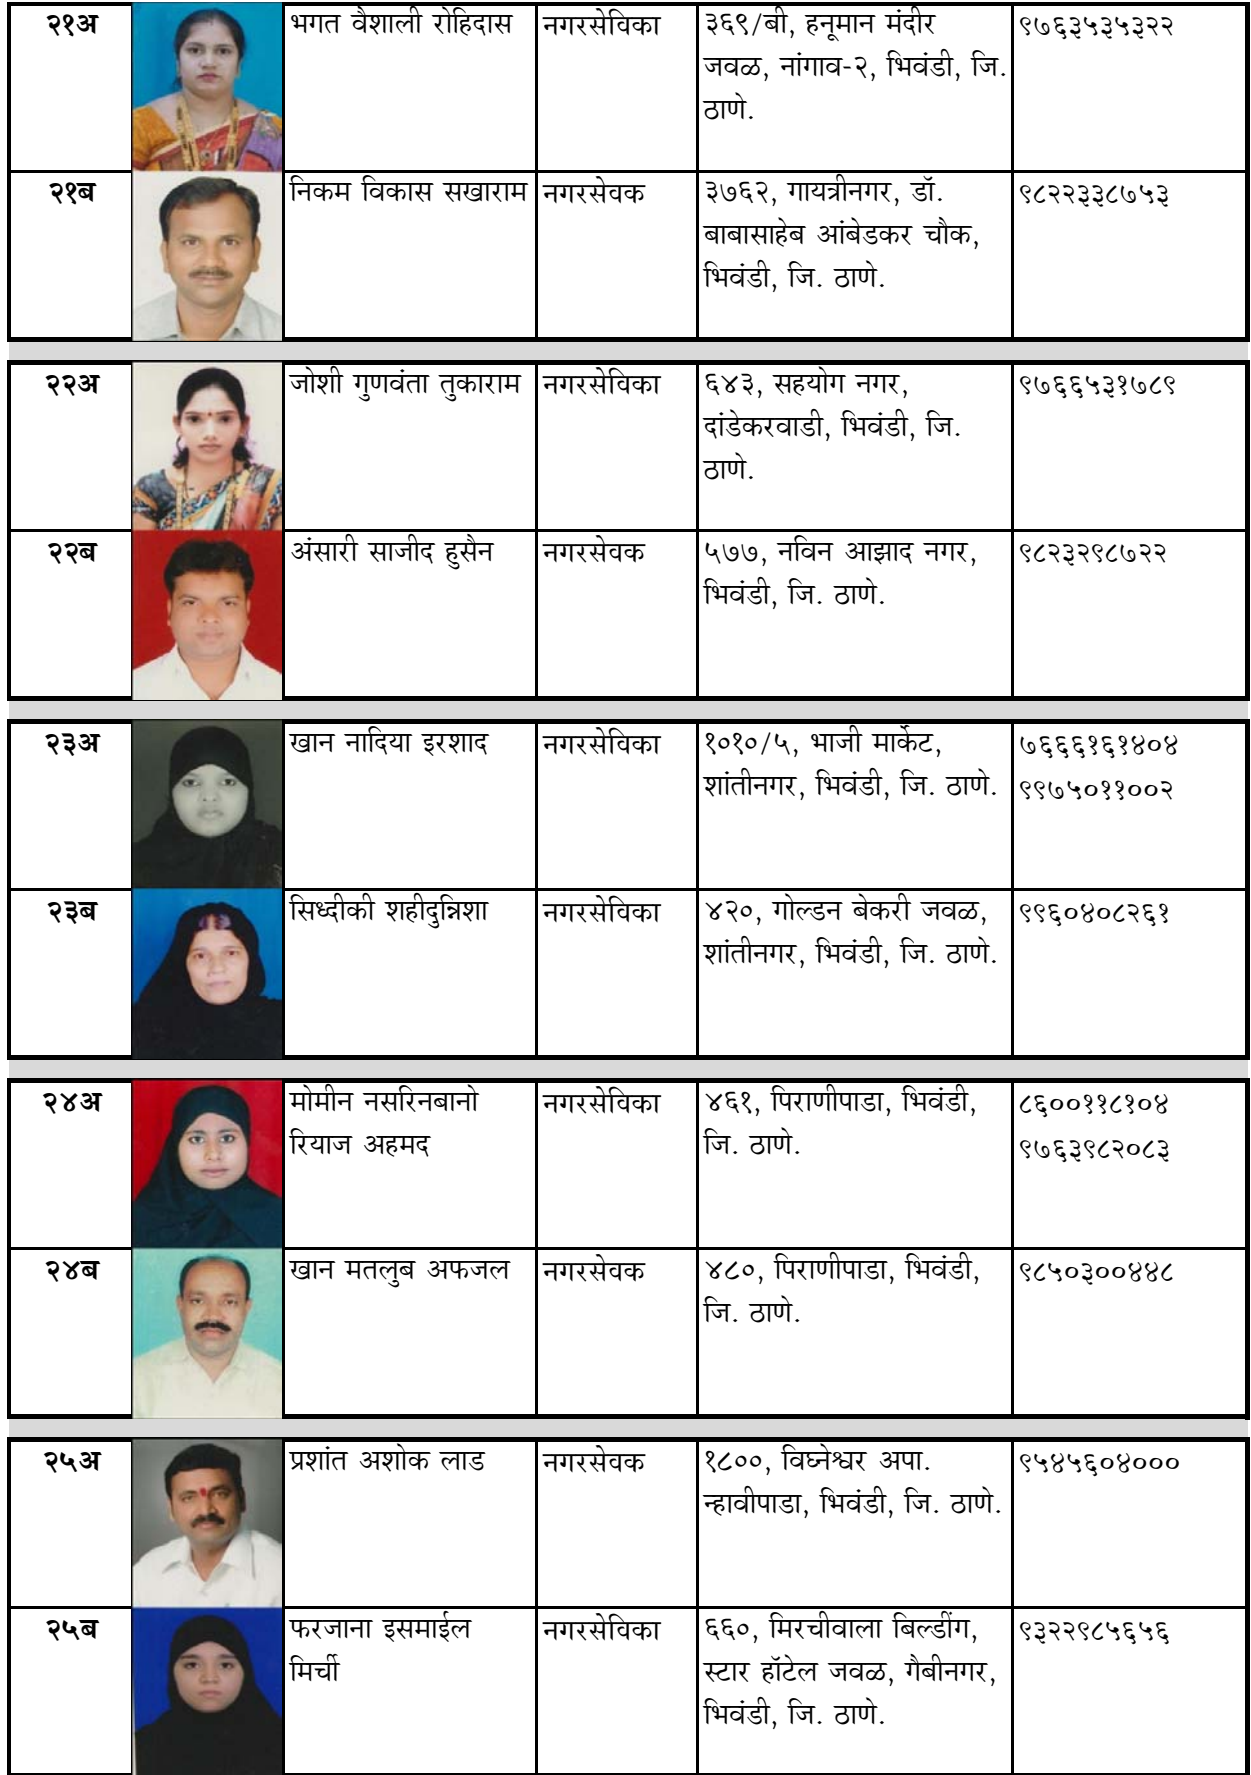 २१अ
भगत वैशाली रोहिदास
नगरसेविका
३६९/बी, हनूमान मंदीर
जवळ, नांगाव-२, भिवंडी, जि.
ठाणे.
९७६३५३५३२२
२१ब
निकम विकास सखाराम
नगरसेवक
३७६२, गायत्रीनगर, डॉ.
बाबासाहेब आंबेडकर चौक,
भिवंडी, जि. ठाणे.
९८२२३३८७५३
२२अ
जोशी गुणवंता तुकाराम
नगरसेविका
६४३, सहयोग नगर,
दांडेकरवाडी, भिवंडी, जि.
ठाणे.
९७६६५३१७८९
२२ब
अंसारी साजीद हुसैन
नगरसेवक
५७७, नविन आझाद नगर,
भिवंडी, जि. ठाणे.
९८२३२९८७२२
२३अ
खान नादिया इरशाद
नगरसेविका
१०१०/५, भाजी मार्केट,
शांतीनगर, भिवंडी, जि. ठाणे.
७६६६१६१४०४
९९७५०११००२
२३ब
सिध्दीकी शहीदुन्निशा
नगरसेविका
४२०, गोल्डन बेकरी जवळ,
शांतीनगर, भिवंडी, जि. ठाणे.
९९६०४०८२६१
२४अ
मोमीन नसरिनबानो
रियाज अहमद
नगरसेविका
४६१, पिराणीपाडा, भिवंडी,
जि. ठाणे.
८६००११८१०४
९७६३९८२०८३
२४ब
खान मतलुब अफजल
नगरसेवक
४८०, पिराणीपाडा, भिवंडी,
जि. ठाणे.
९८५०३००४४८
२५अ
प्रशांत अशोक लाड
नगरसेवक
१८००, विघ्नेश्वर अपा.
न्हावीपाडा, भिवंडी, जि. ठाणे.
९५४५६०४०००
२५ब
फरजाना इसमाईल
मिर्ची
नगरसेविका
६६०, मिरचीवाला बिल्डींग,
स्टार हॉटेल जवळ, गैबीनगर,
भिवंडी, जि. ठाणे.
९३२२९८५६५६